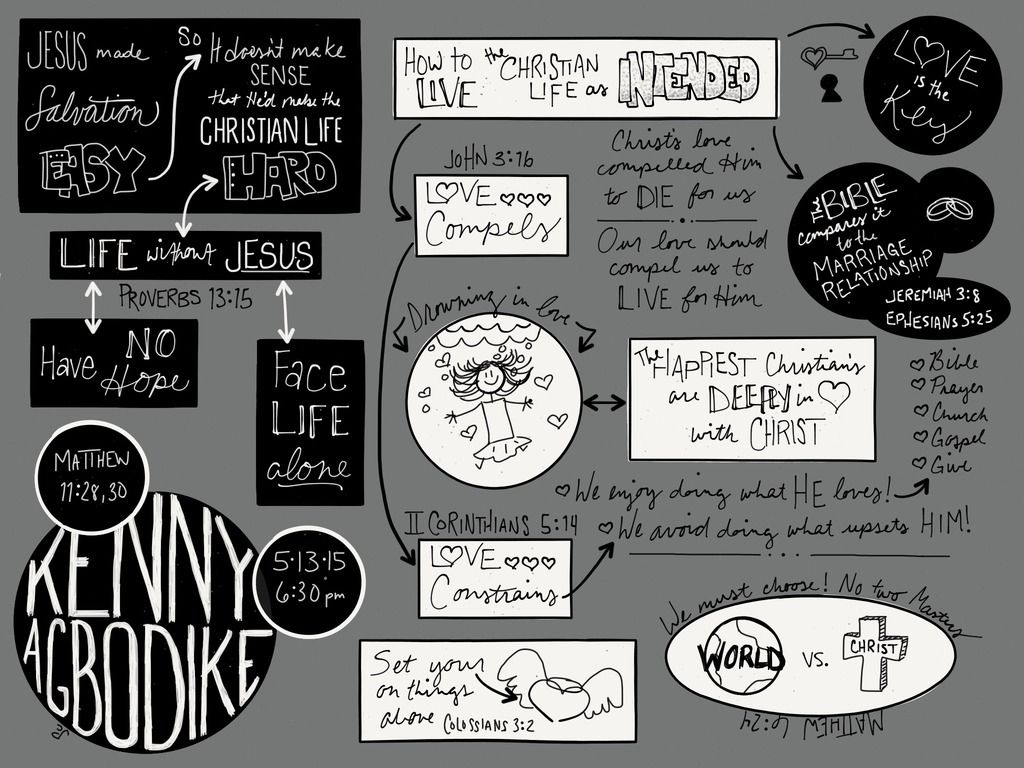 JESUS made
Salvation
EASY
So
It doesn't make
SENSE
that He'd make the
CHRISTIAN LIFE
HARD
LIFE without JESUS
PROVERBS 13:15
Have NO
Hope
FACE
LIFE
alone
MATTHEW
11:28,30
KENNY
AGBODIKE
5·13·15
6:30 pm
HOW TO LIVE the CHRISTIAN LIFE as INTENDED
LOVE
is the
Key
JOHN 3:16
LOVE
Compels
Christ's love
compelled Him
to DIE for us
Our love should
compel us to
LIVE for Him
THE BIBLE
compares it
to the
MARRIAGE
RELATIONSHIP
JEREMIAH 3:8
EPHESIANS 5:25
Drowning in love
The HAPPIEST Christian's
are DEEPLY in
with CHRIST
Bible
Prayer
Church
Gospel
Give
We enjoy doing what HE loves!
We avoid doing what upsets HIM!
II CORINTHIANS 5:14
LOVE
Constrains
Set your
on things
above COLOSSIANS 3:2
We must choose! No two Masters
WORLD VS. CHRIST
MATTHEW 6:24